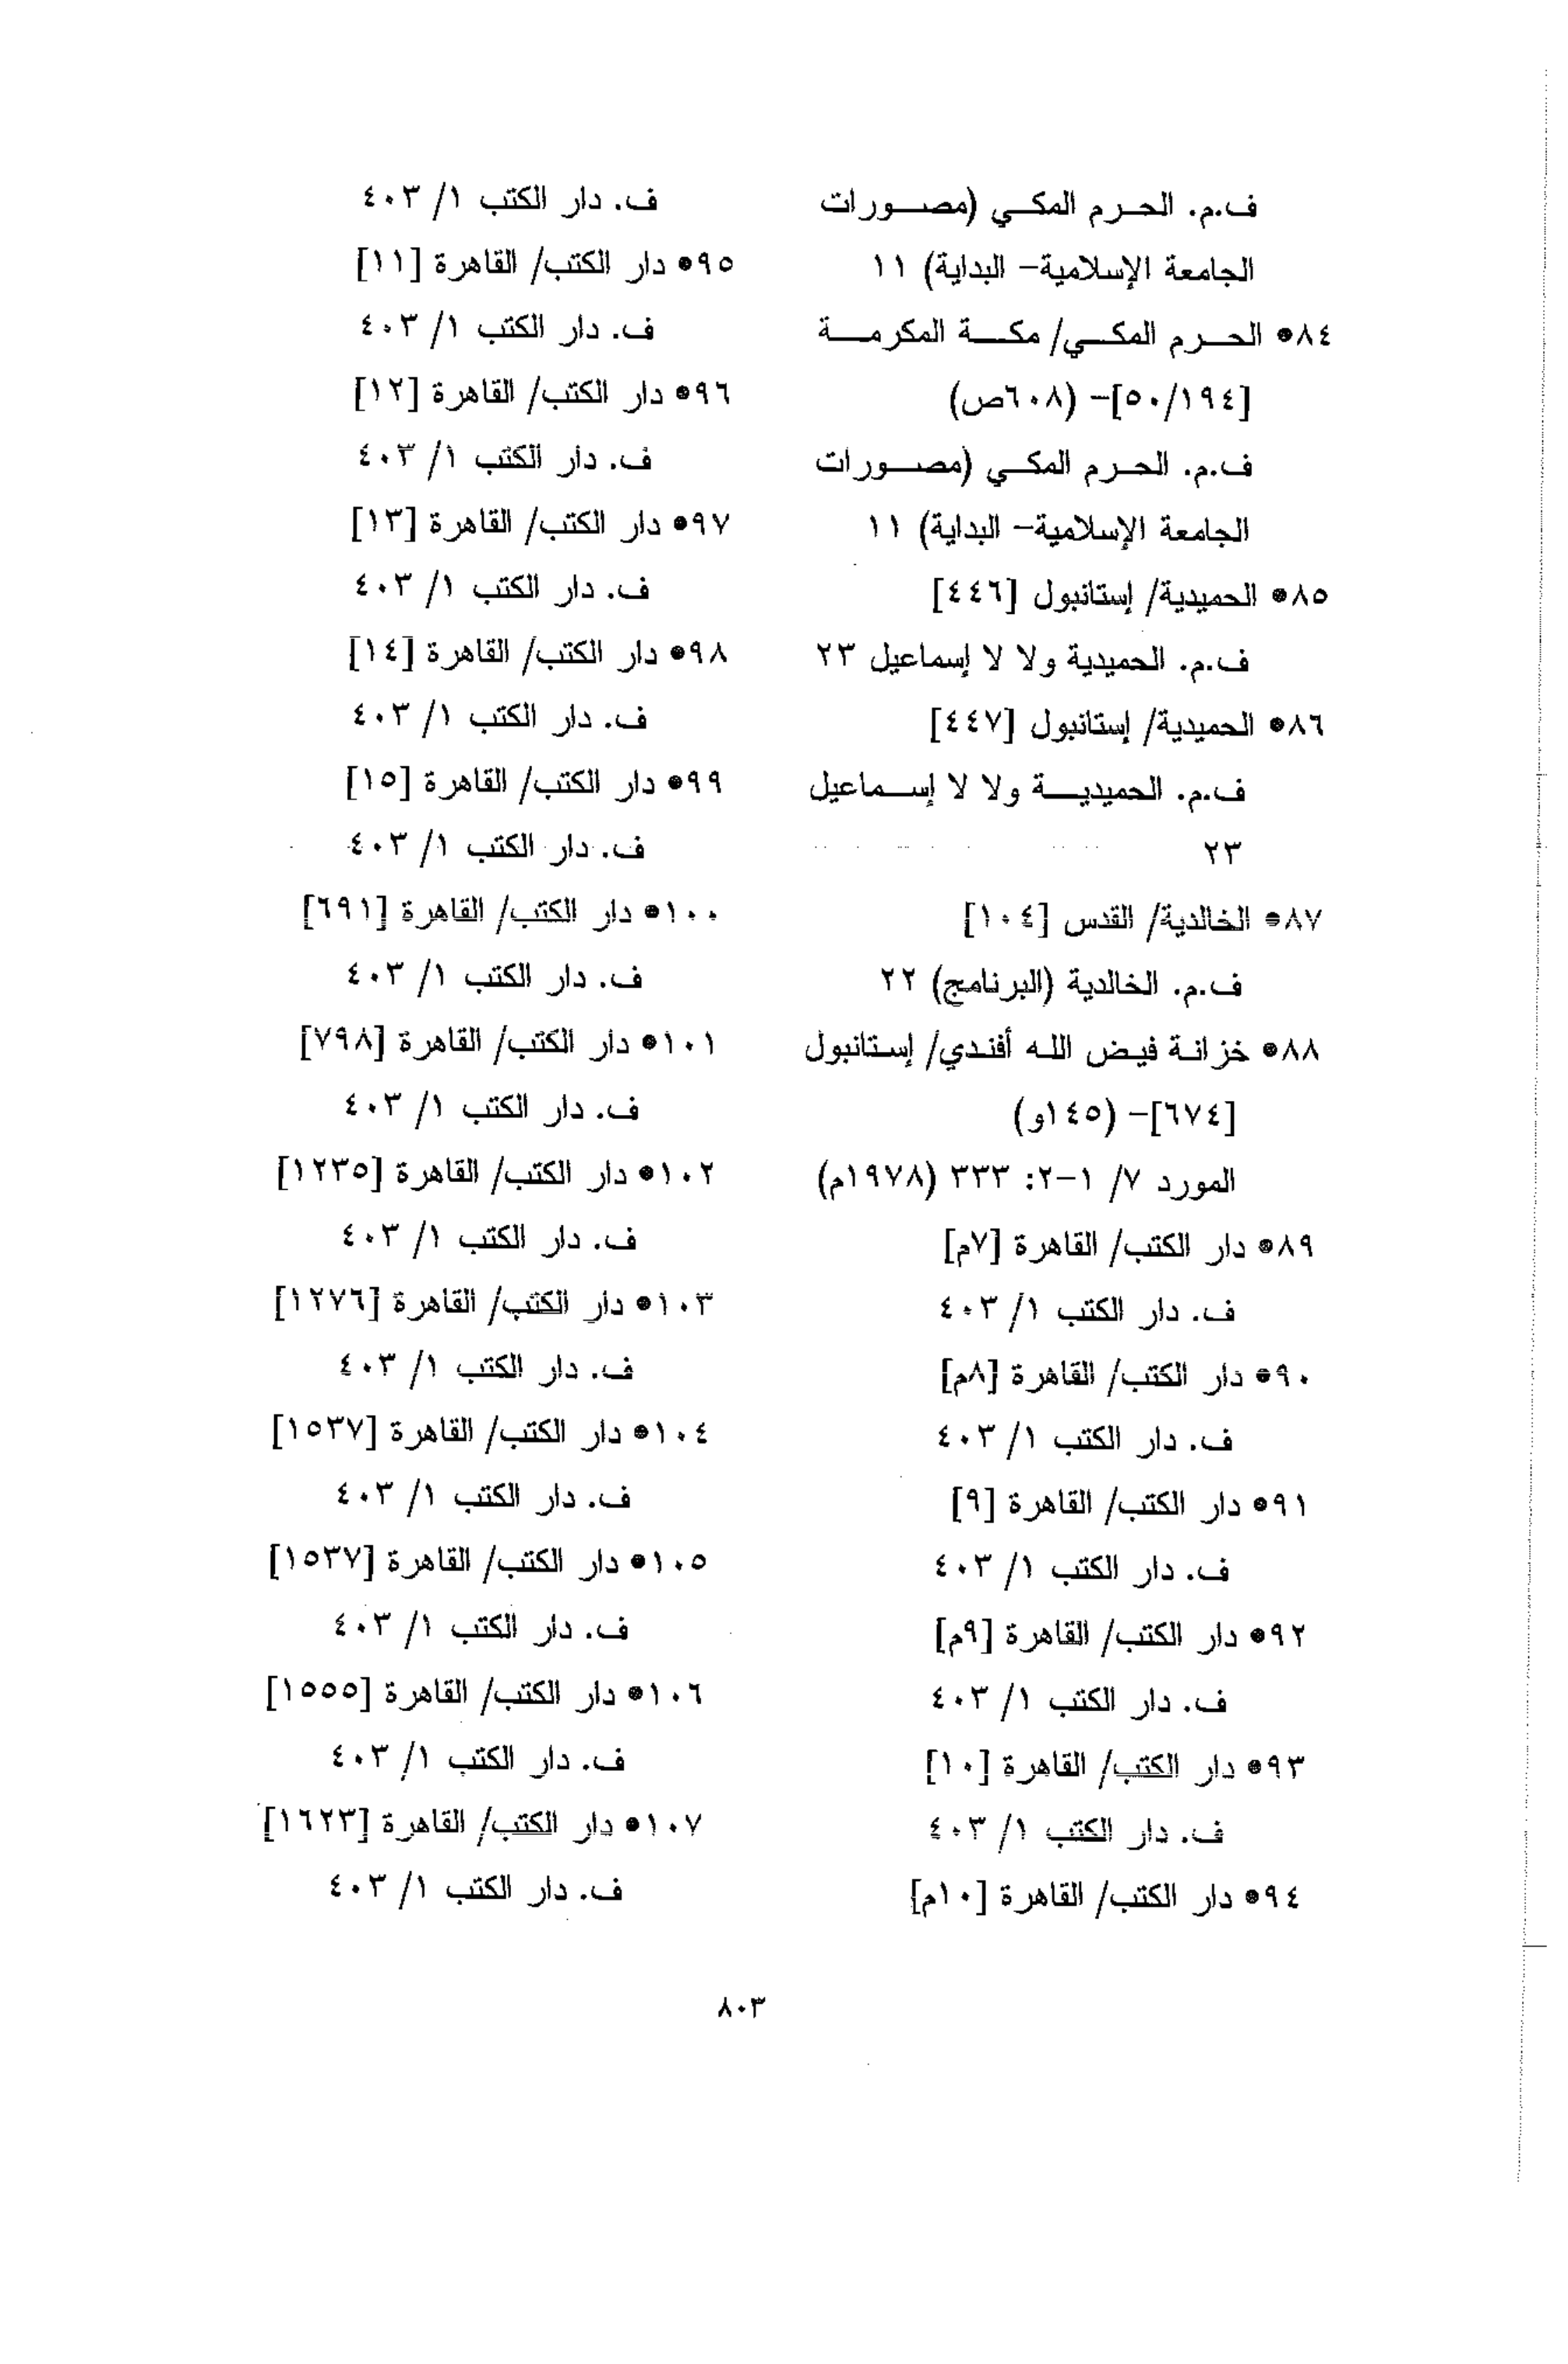 ف.م. الحرم المكي (مصورات
الجامعة الإسلامية- البداية) ١١
٨٤• الحرم المكي/ مكة المكرمة
[٥٠/١٩٤]- (٦٠٨ص)
ف.م. الحرم المكي (مصورات
الجامعة الإسلامية- البداية) ١١
٨٥• الحميدية/ إستانبول [٤٤٦]
ف.م. الحميدية ولا لا إسماعيل ٢٣
٨٦• الحميدية/ إستانبول [٤٤٧]
ف.م. الحميدية ولا لا إسماعيل
٢٣
٨٧• الخالدية/ القدس [١٠٤]
ف.م. الخالدية (البرنامج) ٢٢
٨٨• خزانة فيض الله أفندي/ إستانبول
[٦٧٤]- (١٤٥و)
المورد ٧/ ١-٢: ٣٣٣ (١٩٧٨م)
٨٩• دار الكتب/ القاهرة [٧م]
ف. دار الكتب ١/ ٤٠٣
٩٠• دار الكتب/ القاهرة [٨م]
ف. دار الكتب ١/ ٤٠٣
٩١• دار الكتب/ القاهرة [٩]
ف. دار الكتب ١/ ٤٠٣
٩٢• دار الكتب/ القاهرة [٩م]
ف. دار الكتب ١/ ٤٠٣
٩٣• دار الكتب/ القاهرة [١٠]
ف. دار الكتب ١/ ٤٠٣
٩٤• دار الكتب/ القاهرة [١٠م]
ف. دار الكتب ١/ ٤٠٣
٩٥• دار الكتب/ القاهرة [١١]
ف. دار الكتب ١/ ٤٠٣
٩٦• دار الكتب/ القاهرة [١٢]
ف. دار الكتب ١/ ٤٠٣
٩٧• دار الكتب/ القاهرة [١٣]
ف. دار الكتب ١/ ٤٠٣
٩٨• دار الكتب/ القاهرة [١٤]
ف. دار الكتب ١/ ٤٠٣
٩٩• دار الكتب/ القاهرة [١٥]
ف. دار الكتب ١/ ٤٠٣
١٠٠• دار الكتب/ القاهرة [٦٩١]
ف. دار الكتب ١/ ٤٠٣
١٠١• دار الكتب/ القاهرة [٧٩٨]
ف. دار الكتب ١/ ٤٠٣
١٠٢• دار الكتب/ القاهرة [١٢٣٥]
ف. دار الكتب ١/ ٤٠٣
١٠٣• دار الكتب/ القاهرة [١٢٧٦]
ف. دار الكتب ١/ ٤٠٣
١٠٤• دار الكتب/ القاهرة [١٥٣٧]
ف. دار الكتب ١/ ٤٠٣
١٠٥• دار الكتب/ القاهرة [١٥٣٧]
ف. دار الكتب ١/ ٤٠٣
١٠٦• دار الكتب/ القاهرة [١٥٥٥]
ف. دار الكتب ١/ ٤٠٣
١٠٧• دار الكتب/ القاهرة [١٦٢٣]
ف. دار الكتب ١/ ٤٠٣
٨٠٣